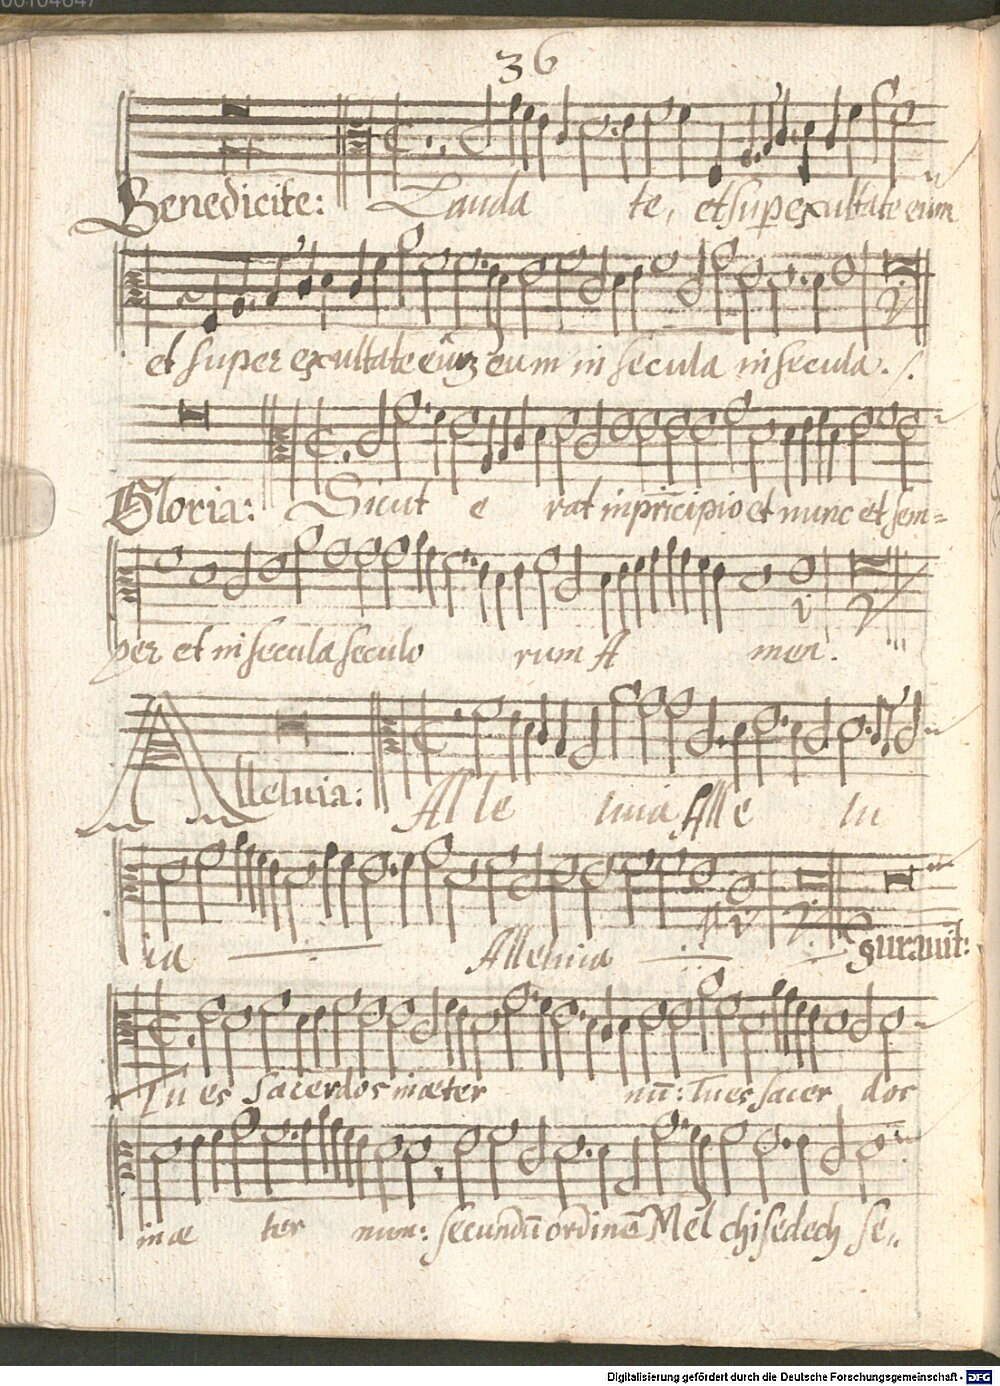 36
Benedicite: Lauda te, et sup exultate eum
et super exultate eūm eum in secula in secula ./.
Gloria: Sicut e rat in prīcipio et nunc et sem=
per et in secula seculo rum A men.
Alleluia: Alle luia Alle lu
ia Alleluia Iurauit:
Tu es sacerdos in æter nū: Tu es sacer dos
in æ ter num: secundū ordinē Mel chisedech se,,
Digitalisierung gefördert durch die Deutsche Forschungsgemeinschaft - DFG